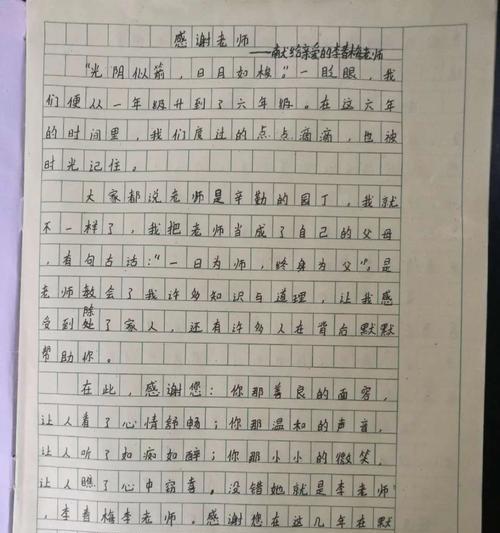 感谢老师
——献给亲爱的李春梅老师
“光阴似箭，日月如梭”一眨眼，我
们便从一年级升到了六年级。在这六年
的时间里，我们度过的点点滴滴，也被
时光记住。
大家都说老师是辛勤的园丁，我就
不一样了，我把老师当成了自己的父母
，有句古话：“一日为师，终身为父”，是
老师教会了我许多知识与道理，让我感
受到除了家人，还有许多人在背后默默
帮助你。
在此，感谢您：你那善良的面容，
让人看了心情舒畅；你那温和的声音，
让人听了如痴如醉；你那小小的微笑，
让人瞧了心中窃喜。没错她就是李老师
，李春梅李老师。感谢您在这几年在默